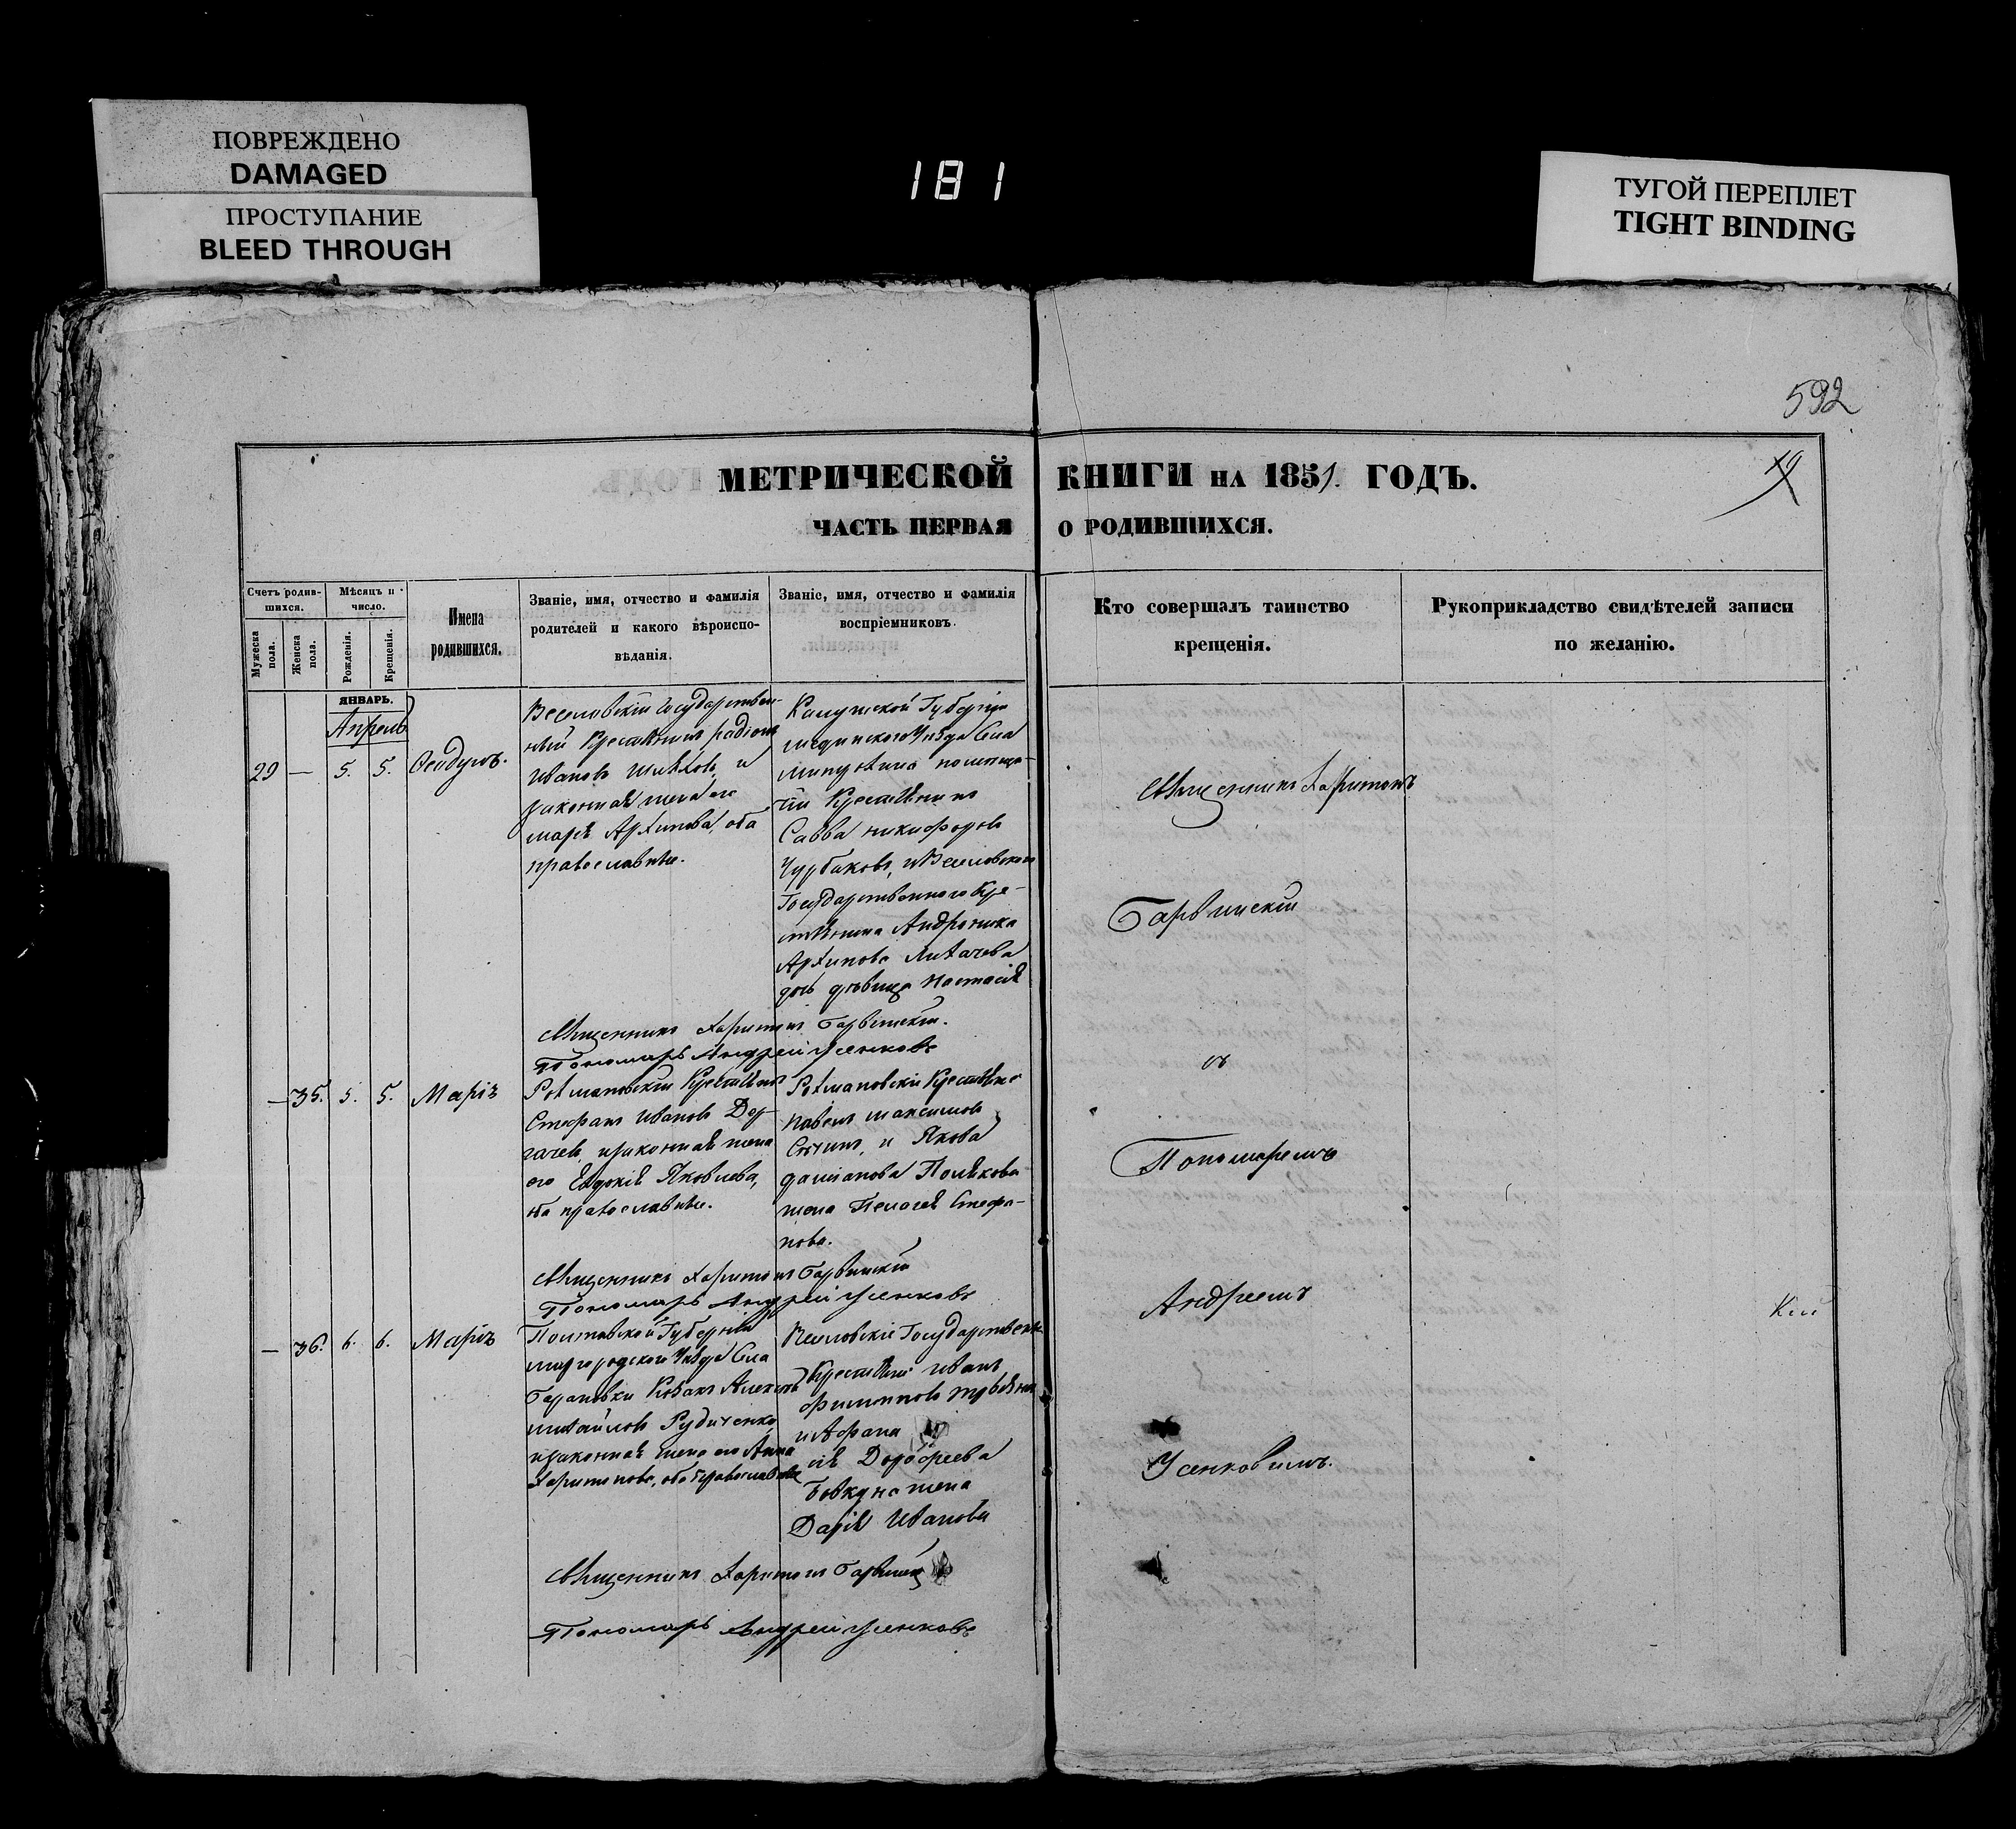 ПОВРЕЖДЕНО
DAMAGED
ПРОСТУПАНИЕ
BLEED THROUGH
181
ТУГОЙ ПЕРЕПЛЕТ
TIGHT BINDING
592
МЕТРИЧЕСКОЙ КНИГИ НА 1851. ГОДЪ.
ЧАСТЬ ПЕРВАЯ О РОДИВШИХСЯ.
Счетъ родив-
шихся.
Мужеска пола.
Женска пола.
Мѣсяцъ и
число.
Рожденія.
Крещенія.
Имена
родившихся.
Званіе, имя, отчество и фамилія
родителей и какого вѣроиспо-
вѣданія.
Званіе, имя, отчество и фамилія
воспріемниковъ.
Кто совершалъ таинство
крещенія.
Рукоприкладство свидѣтелей записи
по желанію.
ЯНВАРЬ.
Апрель
29 — 5. 5.
Веселовскій Государствен-
ный Крестьянинъ
Ивановъ и
законная жена его
Марѳа Архипова, оба
православные.
Калужской Губерніи
Медынскаго Уѣзда Села
помѣщи-
Крестьянинъ
Савва Никифоровъ
Чурбаковъ, и Веселовскаго
Государственнаго Кре-
стьянина Андроника
Архипова Лихачева
дочь дѣвица Настасія
Священникъ Харитонъ
Гарвинскій
Священникъ Харитонъ Гарвинскій.
Пономарь Андрей Усенковъ
— 35. 5. 5. Марія
Рохмановскій Крестьянинъ
Стефанъ Ивановъ Дер-
гачевъ, и законная жена
его Евдокія Яковлева,
оба православные.
Рохмановскій Крестьянинъ
Павелъ Максимовъ
и Якова
Полякова
жена Пелагея Стефа-
нова.
съ
Пономаремъ
Священникъ Харитонъ Гарвинскій
Пономарь Андрей Усенковъ
— 36. 6. 6. Марія
Полтавской Губерніи
Миргородскаго Уѣзда Села
Барановки Козакъ Алексѣй
Михайловъ Рудиченко,
и законная жена его Анна
Харитонова, оба православные
Веселовскіе Государственные
Крестьяне Иванъ
Филипповъ
и Афана
сія Дорофеева
Бовкуна жена
Дарія Иванова
Андреемъ
Усенковымъ.
Священникъ Харитонъ Гарвинскій
Пономарь Андрей Усенковъ